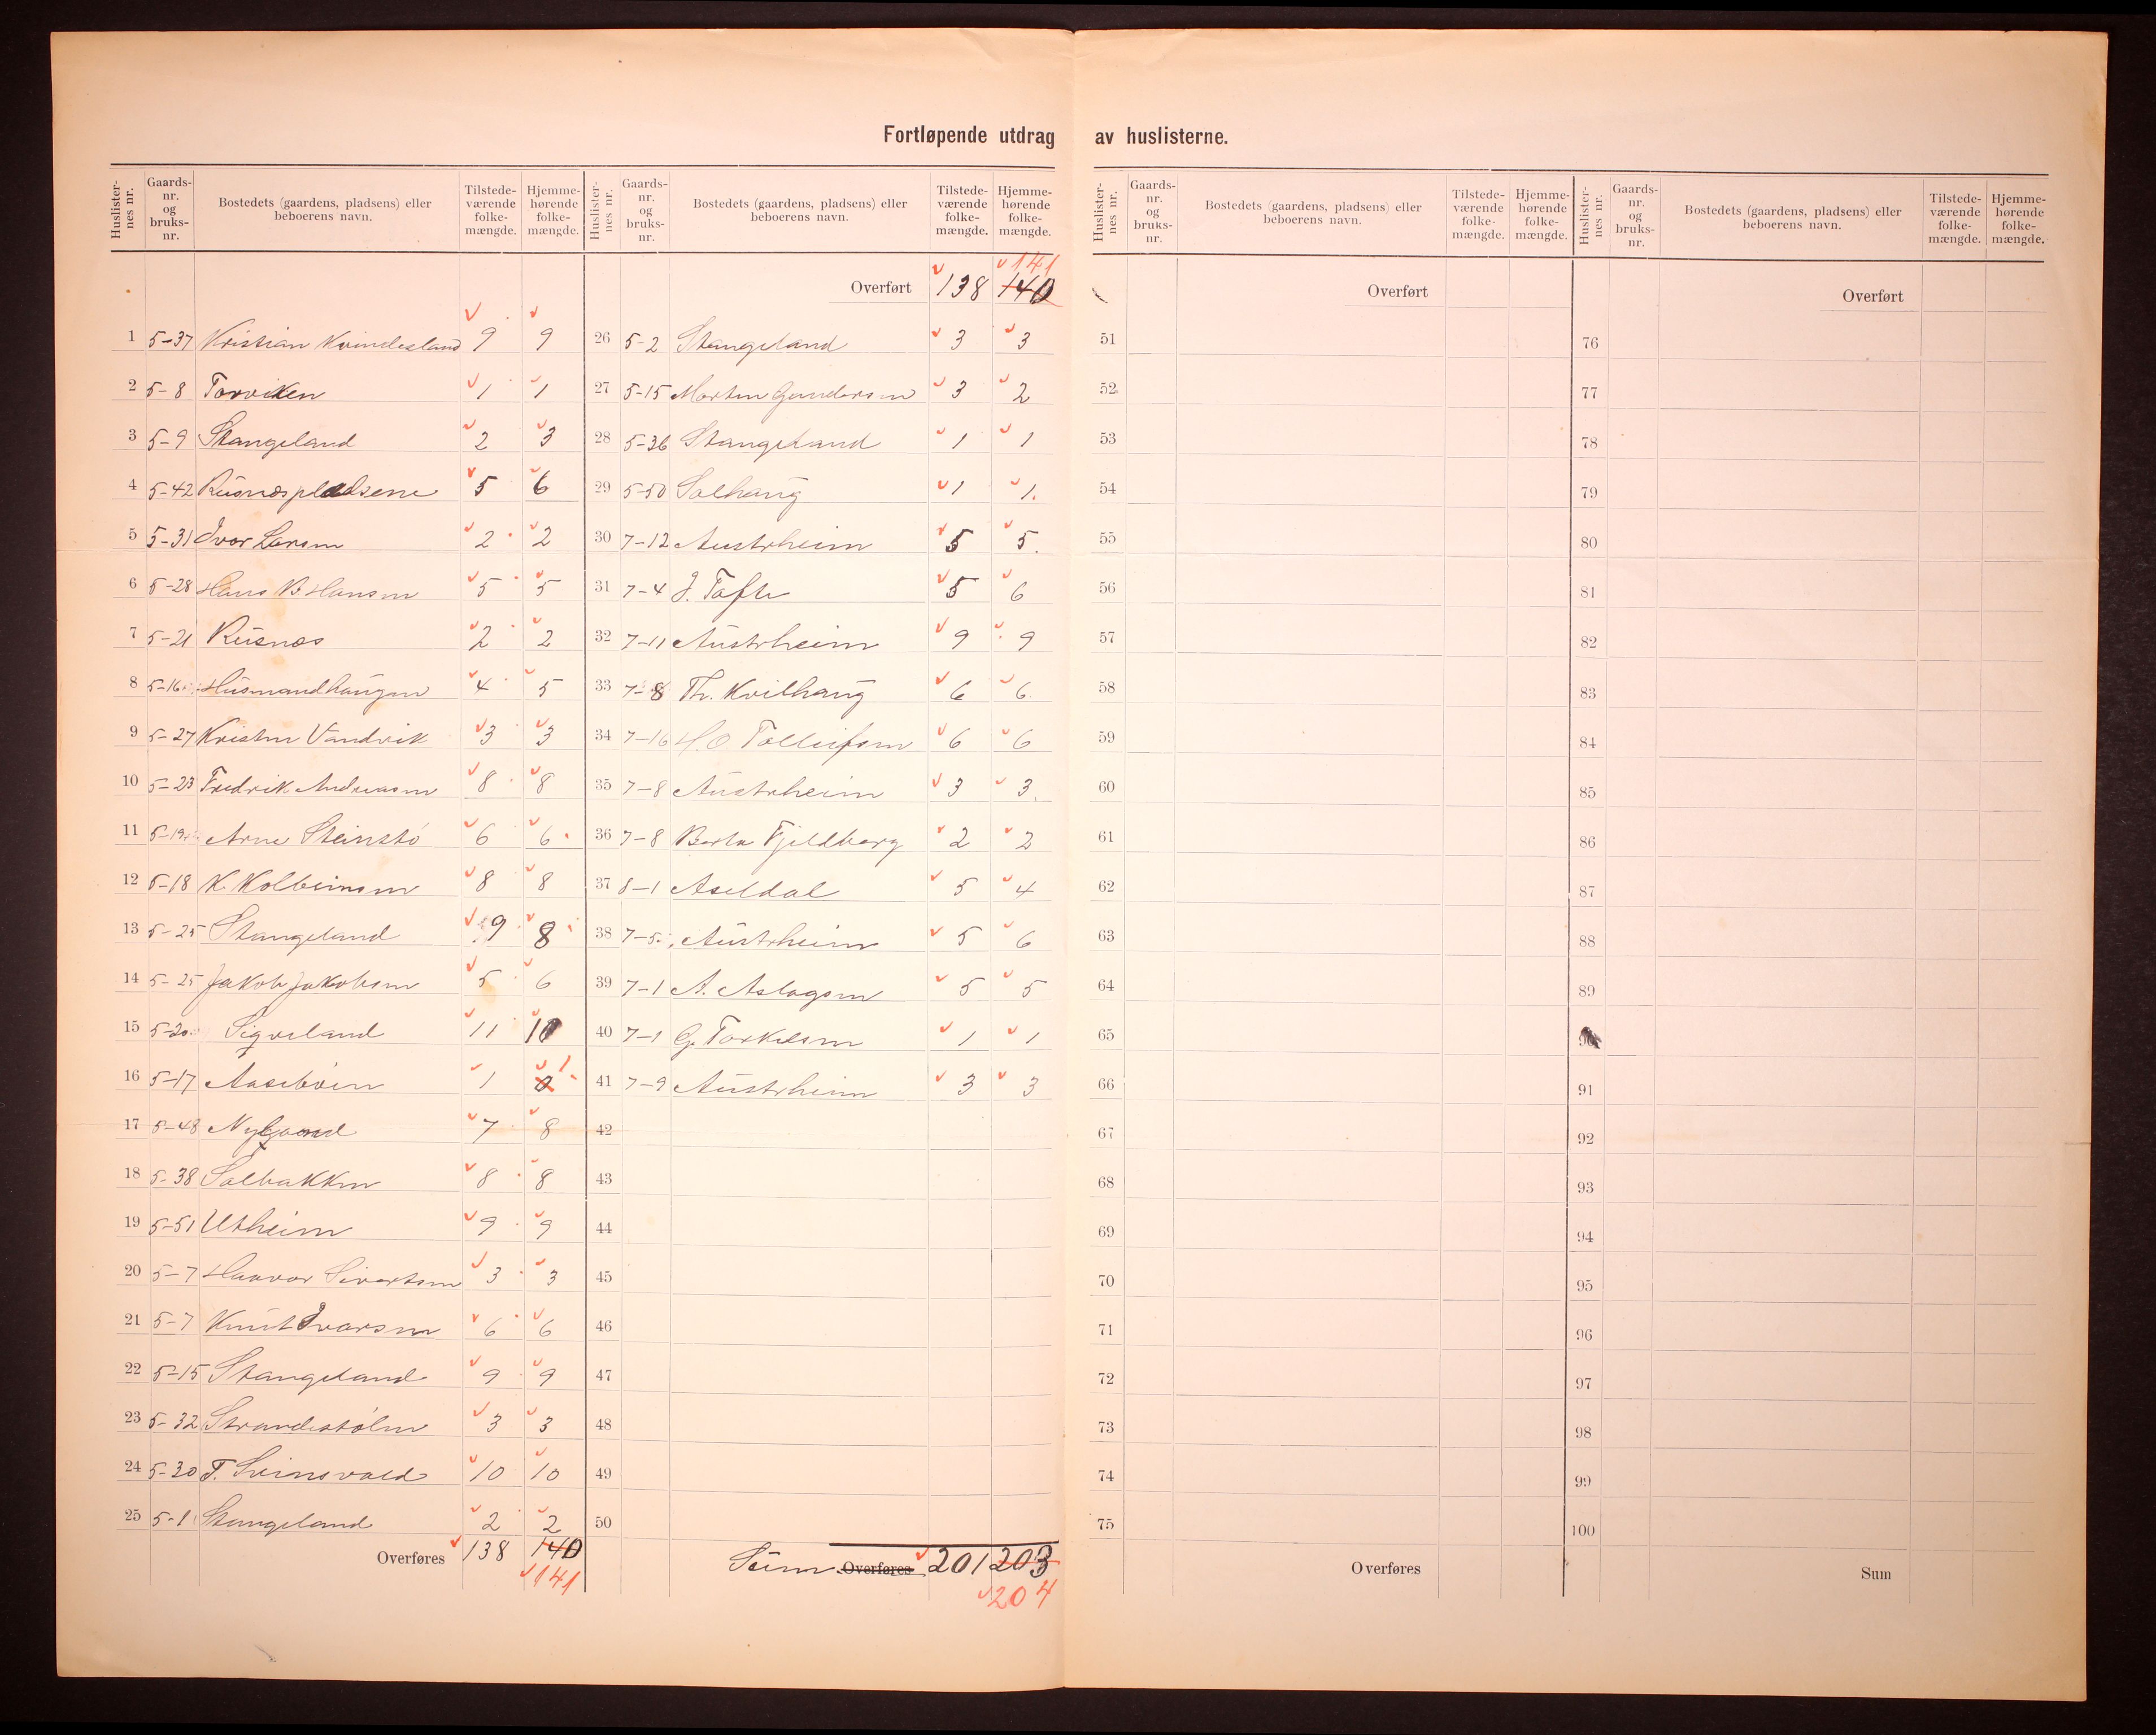 Fortløpende utdrag av huslisterne.
Huslisternes nr. Gaards-nr. og bruks-nr. Bostedets (gaardens, pladsens) eller beboerens navn. Tilstedeværende folkemængde. Hjemmehørende folkemængde.
1 5-37 Kristian Kvindesland 9 9
2 5-8 Torviken 1 1
3 5-9 Stangeland 2 3
4 5-42 Rusnæspladsene 5 6
5 5-31 Ivar Larsen 2 2
6 5-28 Hans B Hansen 5 5
7 5-21 Rusnæs 2 2
8 5-16 Husmandhaugen 4 5
9 5-27 Kristen Vandvik 3 3
10 5-23 Fredrik Andreasen 8 8
11 5-19 Arne Steinstö 6 6
12 5-18 K. Kolbeinsen 8 8
13 5-25 Stangeland 9 8
14 5-25 Jakob Jakobsen 5 6
15 5-20 Sigveland 11 10
16 5-17 Aaseböen 1 0 1
17 5-48 Nygaard 7 8
18 5-38 Solbakken 8 8
19 5-51 Utheim 9 9
20 5-7 Haavar Sivertsen 3 3
21 5-7 Knut Ivarsen 6 6
22 5-15 Stangeland 9 9
23 5-32 Strandestølen 3 3
24 5-30 T. Svinsvold 10 10
25 5-1 Stangeland 2 2
Overføres 138 140
141
Huslisternes nr. Gaards-nr. og bruks-nr. Bostedets (gaardens, pladsens) eller beboerens navn. Tilstedeværende folkemængde. Hjemmehørende folkemængde.
141
Overført 138 140
26 5-2 Stangeland 3 3
27 5-15 Morten Gundersen 3 2
28 5-36 Stangeland 1 1
29 5-50 Solhaug 1 1.
30 7-12 Austrheim 5 5.
31 7-4 J. Tofte 5 6
32 7-11 Austrheim 9 9
33 7-8 Th. Kvilhaug 6 6
34 7-16 H.O Tolleifsen 6 6
35 7-8 Austrheim 3 3.
36 7-8 Berta Fjeldberg 2 2
37 8-1 Aseldal 5 4
38 7-5 Austrheim 5 6
39 7-1 A. Aslagsen 5 5
40 7-1 G. Torkelsen 1 1
41 7-9 Austrheim 3 3
42
43
44
45
46
47
48
49
50
Sum Overføres 201 203
204
Huslisternes nr. Gaards-nr. og bruks-nr. Bostedets (gaardens, pladsens) eller beboerens navn. Tilstedeværende folkemængde. Hjemmehørende folkemængde.
Overført
51
52
53
54
55
56
57
58
59
60
61
62
63
64
65
66
67
68
69
70
71
72
73
74
75
Overføres
Huslisternes nr. Gaards-nr. og bruks-nr. Bostedets (gaardens, pladsens) eller beboerens navn. Tilstedeværende folkemængde. Hjemmehørende folkemængde.
Overført
76
77
78
79
80
81
82
83
84
85
86
87
88
89
90
91
92
93
94
95
96
97
98
99
100
Sum